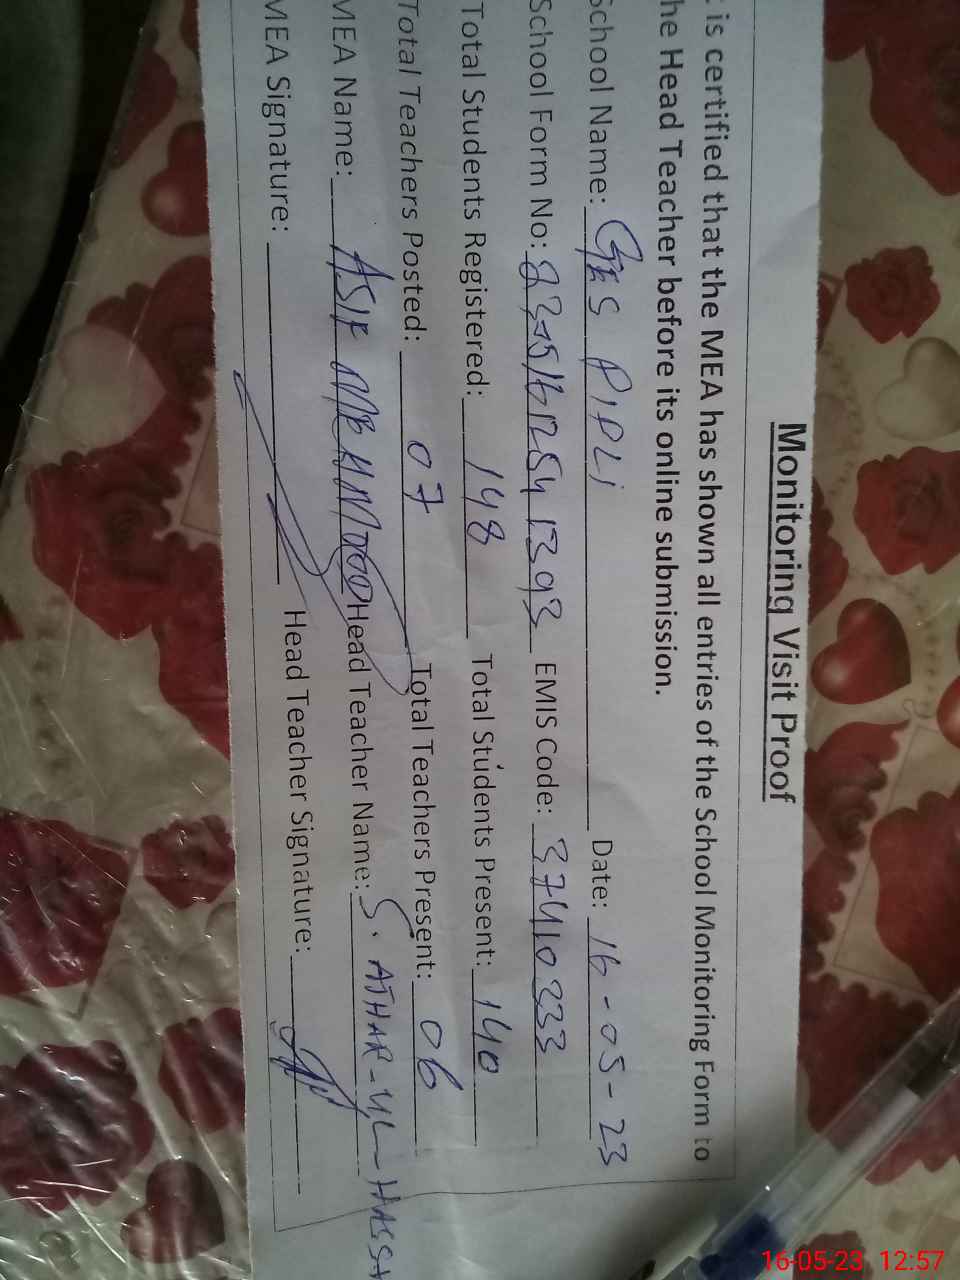 Monitoring Visit Proof
t is certified that the MEA has shown all entries of the School Monitoring Form to
he Head Teacher before its online submission.
School Name: GES PIPLi Date: 16-05-23
School Form No: EMIS Code: 37410333
Total Students Registered: 148 Total Students Present: 140
Total Teachers Posted: 07 Total Teachers Present: 06
MEA Name: ASIF MEHMOOD Head Teacher Name: S. ATHAR-UL-HASSA
MEA Signature: Head Teacher Signature:
16-05-23 12:57